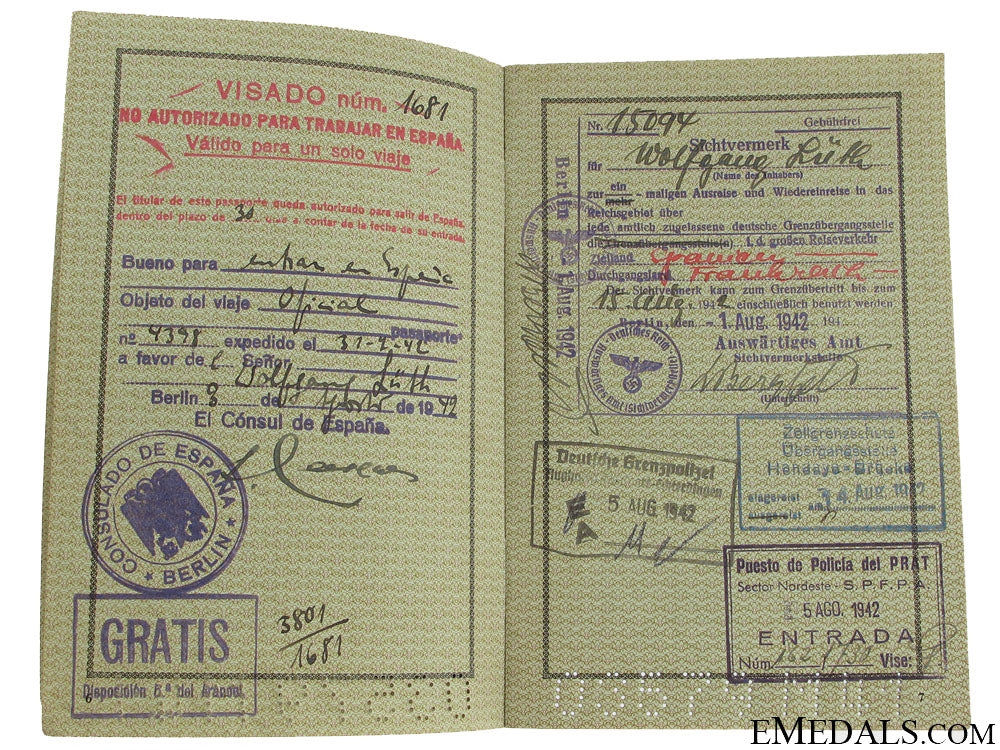 VISADO núm. 1681
NO AUTORIZADO PARA TRABAJAR EN ESPAÑA
Válido para un solo viaje
El titular de este pasaporte queda autorizado para salir de España,
dentro del plazo de 30 días a contar de la fecha de su entrada.
Bueno para entrar en España
Objeto del viaje Oficial
pasaporte
nº 4398 expedido el 31-7-42
a favor de l Señor
Wolfgang Lüth
Berlin 3 de Agosto de 1942
El Cónsul de España.
CONSULADO DE ESPAÑA
★ BERLIN ★
GRATIS
Disposición 6ª del Arancel
3801
1681
6
Nr. 15094 Gebührfrei
Sichtvermerk
für Wolfgang Lüth
(Name des Inhabers)
zur ein mehr - maligen Ausreise und Wiedereinreise in das
Reichsgebiet über
jede amtlich zugelassene deutsche Grenzübergangsstelle
die Grenzübergangsstelle(n) i. d. großen Reiseverkehr
Zielland Spanien
Durchgangsland Frankreich
Der Sichtvermerk kann zum Grenzübertritt bis zum
15. Aug. 1942 einschließlich benutzt werden
Berlin, den - 1. Aug. 1942 194
Auswärtiges Amt
Sichtvermerkstelle
(Unterschrift)
Berlin - 1. Aug. 1942
Deutsches Reich
Deutsche Grenzpolizei
5 AUG. 1942
Zollgrenzschutz
Übergangsstelle
Hendaye-Brücke
eingereist 14 Aug. 1942
Puesto de Policía del PRAT
Sector Nordeste - S.P.F.P.A.
5 AGO. 1942
ENTRADA
Núm. Vise:
7
EMEDALS.COM